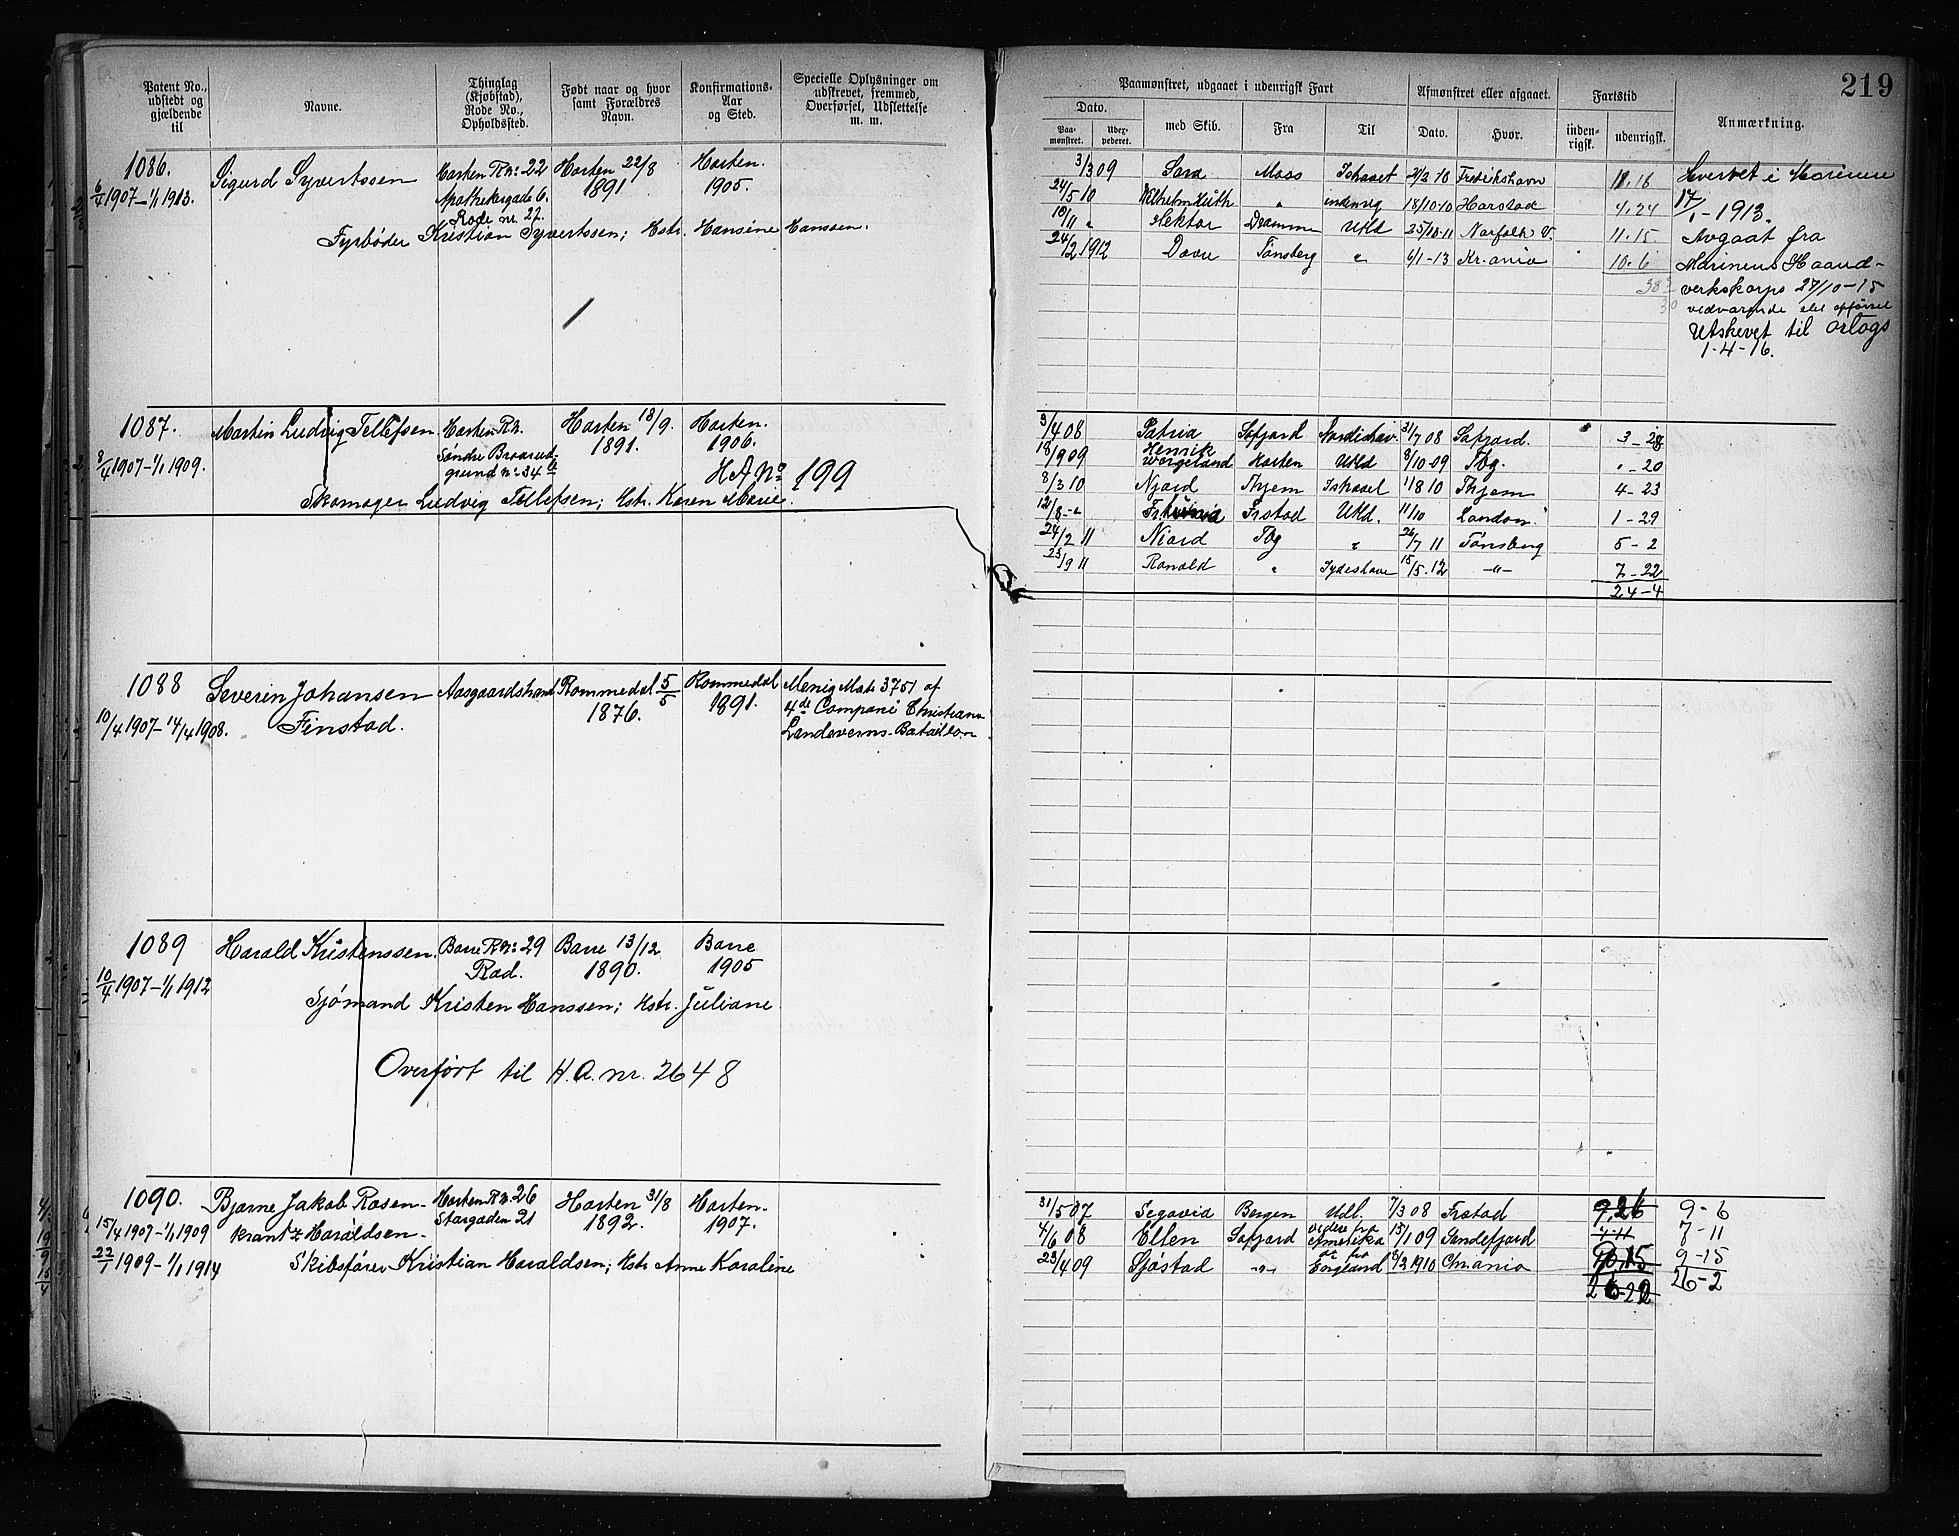 219
Patent No., udstedt og gjældende til
Navne.
Thinglag (Kjøbstad), Rode No., Opholdssted.
Født naar og hvor samt Forældres Navn.
Konfirmations-Aar og Sted.
Specielle Oplysninger om udskrevet, fremmed, Overførsel, Udslettelse m. m.
Paamønstret, udgaaet i udenrigsk Fart
Afmønstret eller afgaaet.
Fartstid
Anmærkning.
Dato.
med Skib.
Fra
Til
Dato.
Hvor.
inden-rigsk.
udenrigsk.
Paa-mønstret.
1086. Sigurd Syvertssen Horten R.No: 22 Horten 22/8 Horten.
6/4 1907–1/1 1913. Apothekergade 6. 1891 1905.
Rode nr. 27.
Fyrbøder Kristian Syvertssen; Hstr. Hansine Hanssen.
3/3 09 Sara Moss Ishavet 2/2 10 Fredrikshavn 11.16 Hvervet i Marinen
24/5 10 Wilhelm Huth " indenrig 18/10-10 Harstad 4.24 17/1-1913.
10/11 " Hektor Dramm Utld 25/10-11 Norfolk V. 11.15. Avgaat fra
24/2 1912 Tønsberg " 6/1-13 Kr.ania 10.6 Marinens Haand-
verkskorps 27/10-15
Utskevet til orlogs
1-4-16.
1087. Martin Ludvig Tellefsen Horten R.N. Horten 18/9. Horten.
8/4 1907–1/1 1909. Søndre Braarud- 1891. 1906.
grund No: 34 b H A No 199
Skomager Ludvig Tellefsen; Hstr. Karen Marie.
3/4 08 Patria Safjord Nordishav. 31/7 08 Safjord. 3-28
18/9 09 Henrik Wergeland Horten Utld 8/10-09 Tbg. "-20
8/3 10 Njord Thjem Ishavet 1/8 10 Thjem 4-23
12/8-" Frstad Utld. 11/10 London 1-29
24/2 11 Niord Tbg " 26/7 11 Tønsberg 5-2
25/9 11 Ronald " Sydishave 15/5-12 -"- 7-22
24-4
1088 Severin Johansen Aasgaardstrand Rommedal 5/5 Rommedal Menig Mats 3751 af
10/4 1907–14/4 1908. Finstad. 1876. 1891. 4de Compani Christiania
Landeverns-Batailton
1089 Harald Kristenssen. Borre R.N: 29 Borre 13/12 Borre
10/4 1907–1/1 1912 Rød. 1890. 1905
Sjømand Kristen Hanssen; Hstr. Juliane
Overført til H.A. nr. 2648
1090. Bjarne Jakob Rosen- Horten R.N. 26 Horten 31/8 Horten.
15/4 1907–1/1 1909 krantz Haraldsen. Storgaden 21 1892. 1907.
22/1 1909–1/1 1914 Skibsfører Kristian Haraldsen; Hstr Anne Karoline
31/5 07 Segovia Bergen Udl. 7/3 08 Frstad 9,26 9-6
4/6 08 Ellen Safjord videre fra Amerika 15/1 09 Sandefjord 7-11
23/4 09 Sjøstad -"- England 8/2 1910 Chr.ania 9-15
26-2